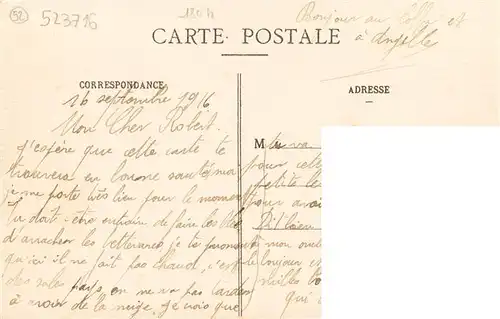 52
523716
180 h
Bonjour au Colla et
à Angelle
CARTE POSTALE
CORRESPONDANCE
ADRESSE
16 septembre 1916
Mon Cher Robert.
J'espère que cette carte te
trouvera en bonne santé moi
je me porte très bien pour le moment
Tu doit-être entrain de faire les blés
d'arracher les betteraves je te promet
qu'ici il ne fait pas chaud, c'est
des sales pays, on ne va pas tarder
à avoir de la neige, je crois que
M tu va
pour cette
petite le
pour avoir
Dit bien
à mon oncle
le bonjour et
vieilles bo
qui